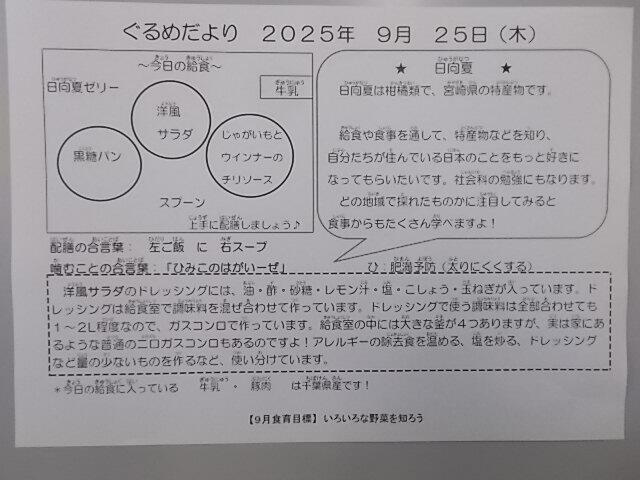 ぐるめだより 2025年 9月 25日(木)
～今日の給食～
日向夏ゼリー
牛乳
洋風
サラダ
黒糖パン
じゃがいもと
ウインナーの
チリソース
スプーン
上手に配膳しましょう♪
★ 日向夏 ★
日向夏は柑橘類で、宮崎県の特産物です。
給食や食事を通して、特産物などを知り、
自分たちが住んでいる日本のことをもっと好きに
なってもらいたいです。社会科の勉強にもなります。
どの地域で採れたものかに注目してみると
食事からもたくさん学べますよ!
配膳の合言葉: 左ご飯 に 右スープ
噛むことの合言葉:「ひみこのはがいーぜ」 ひ:肥満予防(太りにくくする)
洋風サラダのドレッシングには、油・酢・砂糖・レモン汁・塩・こしょう・玉ねぎが入っています。ド
レッシングは給食室で調味料を混ぜ合わせて作っています。ドレッシングで使う調味料は全部合わせても
1～2L程度なので、ガスコンロで作っています。給食室の中には大きな釜が4つありますが、実は家にあ
るような普通の二口ガスコンロもあるのですよ!アレルギーの除去食を温める、塩を炒る、ドレッシング
など量の少ないものを作るなど、使い分けています。
*今日の給食に入っている 牛乳 ・ 豚肉 は千葉県産です!
【9月食育目標】いろいろな野菜を知ろう